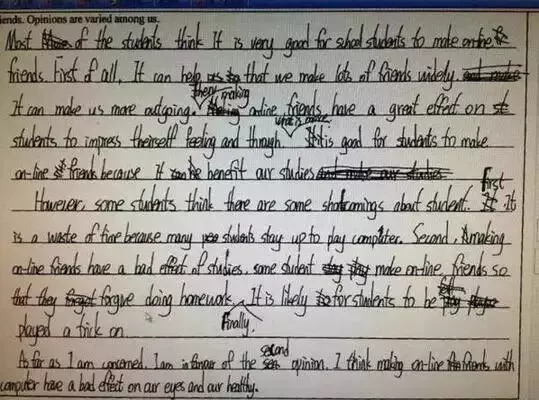 iends. Opinions are varied among us.
Most of the students think It is very good for school students to make on-line
friends. First of all, It can help us that we make lots of friends widely.
It can make us more outgoing. Then, making on-line friends have a great effect on
students to impress theirself feeling and through. what's more, It is good for students to make
on-line friends because it benefit our studies
However, some students think there are some shortcomings about student. First It
is a waste of time because many students stay up to play computer. Second, making
on-line friends have a bad effect of studies, some student make on-line friends so
that they forgive doing homework. Finally. It is likely for students to be
played a trick on.
As far as I am concerned, I am in favour of the second opinion. I think making on-line friends with
computer have a bad effect on our eyes and our healthy.